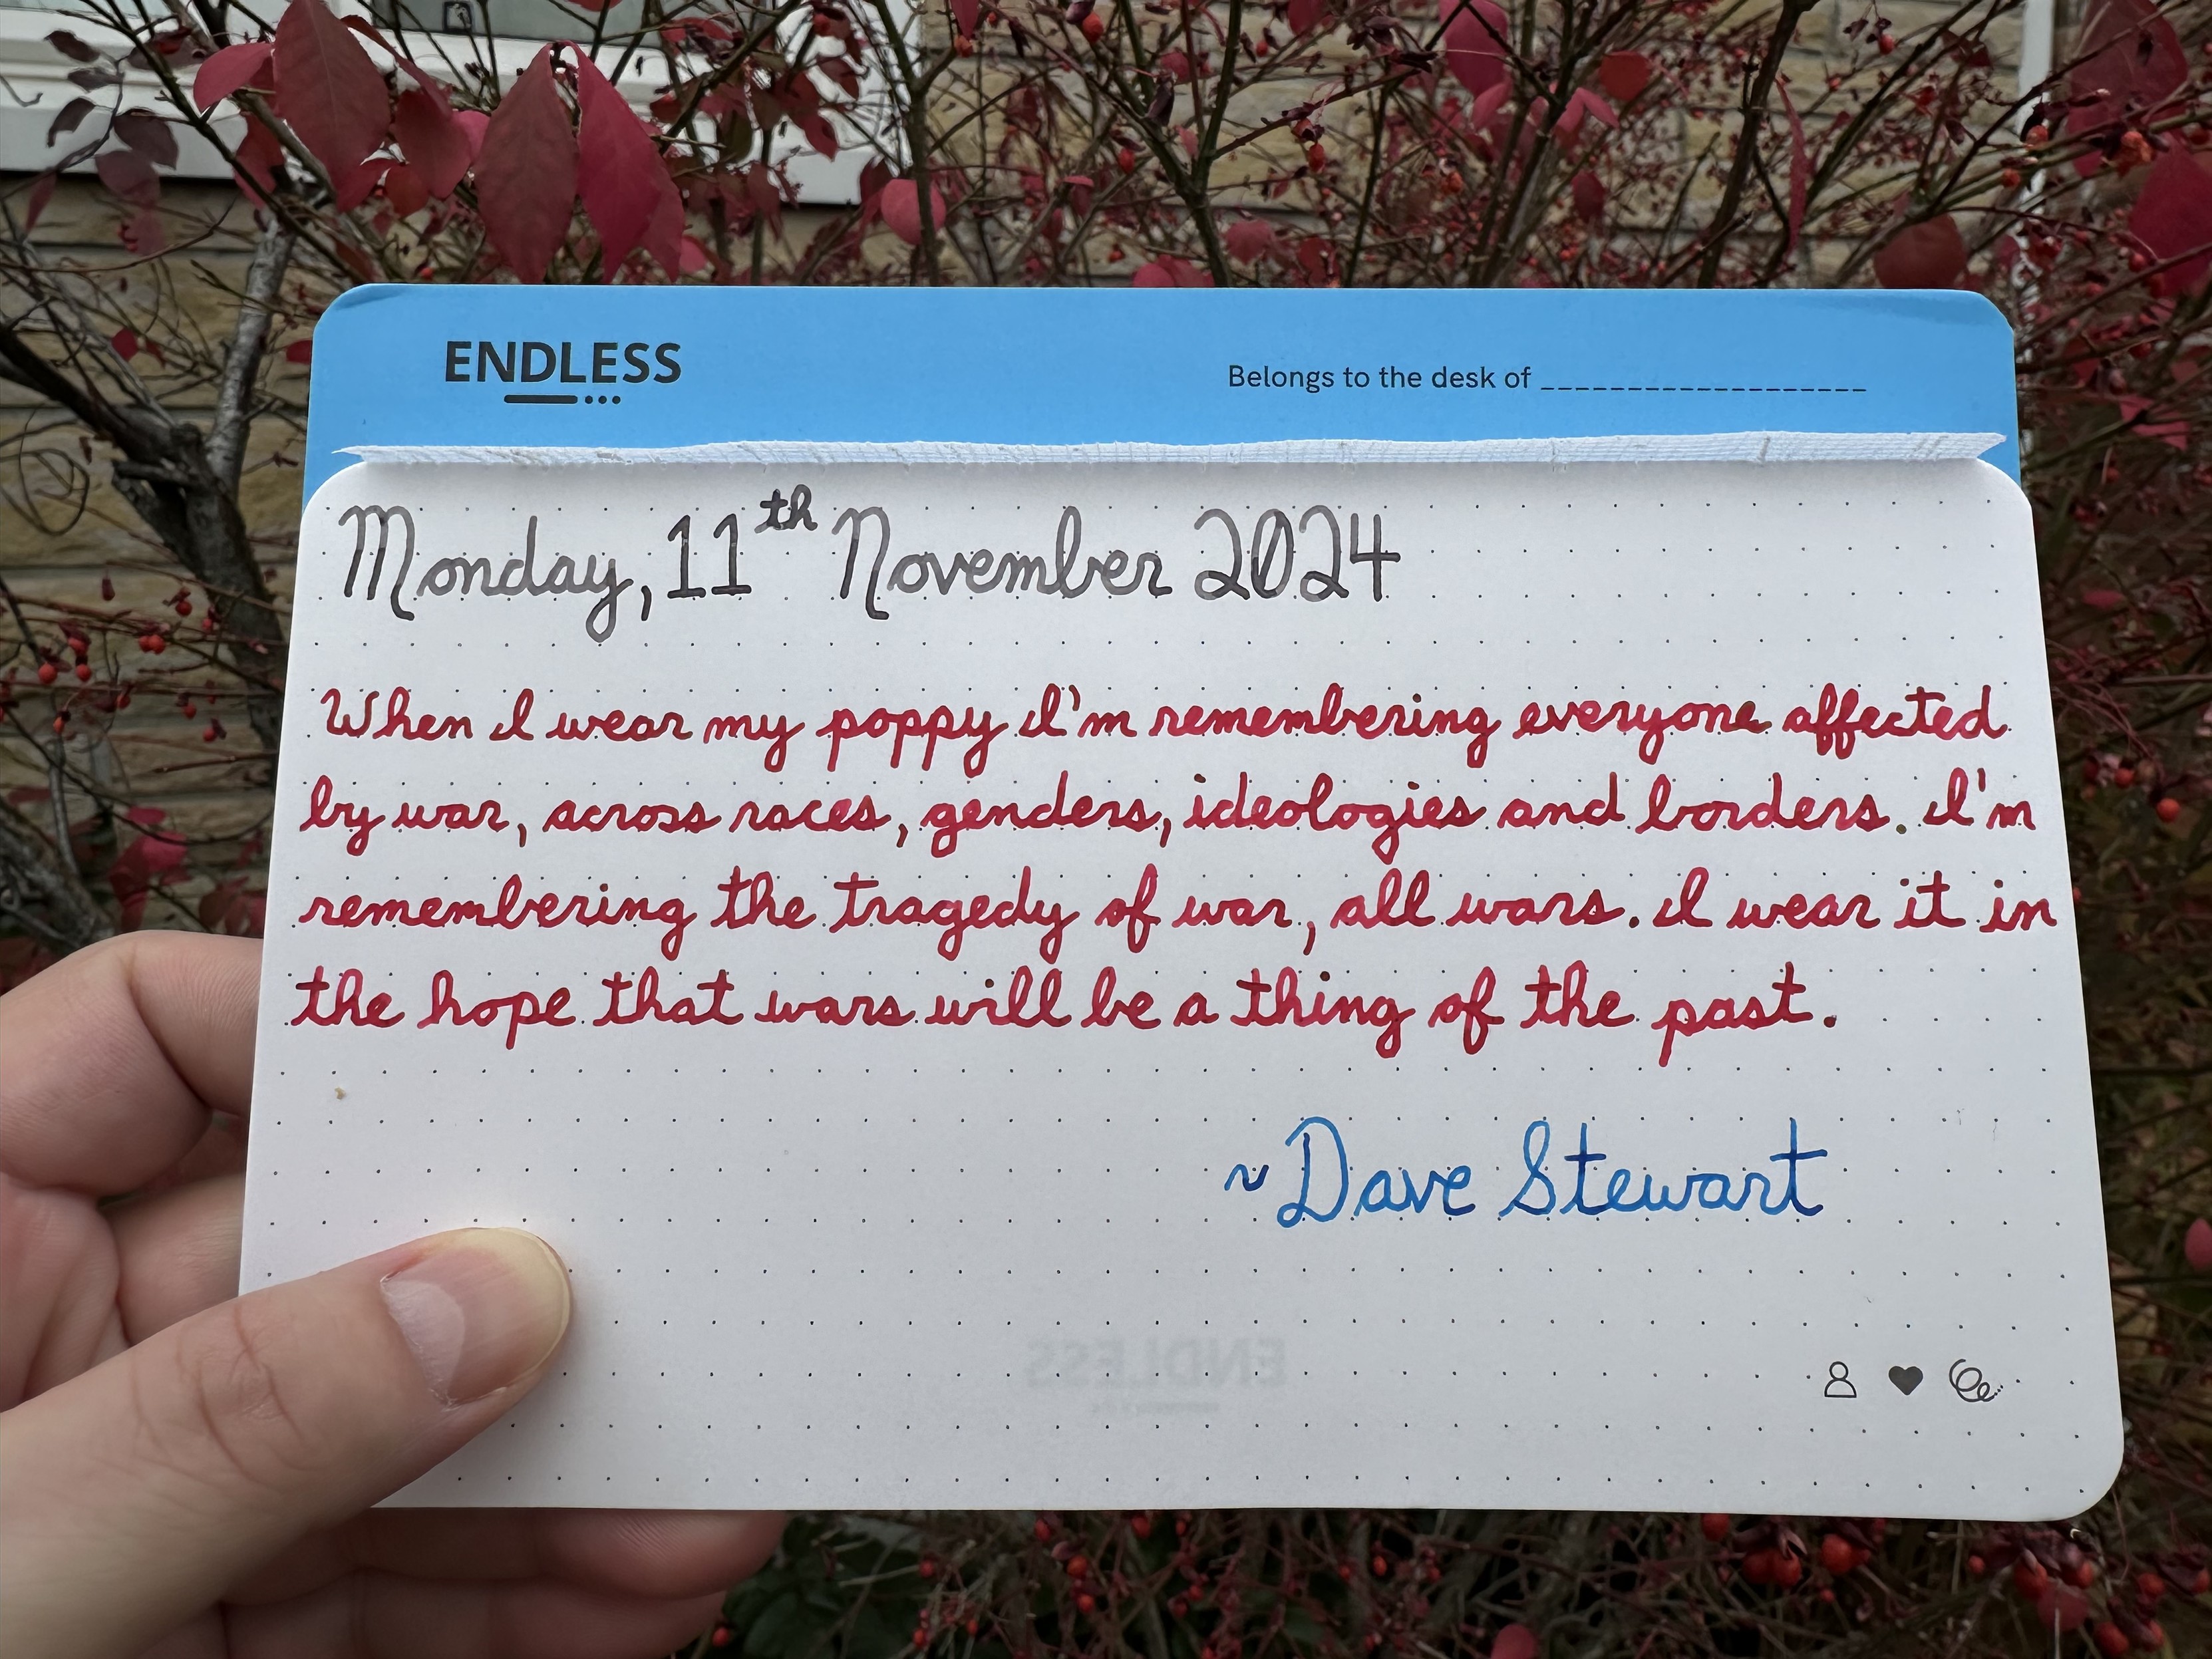 ENDLESS
Belongs to the desk of ___________________
Monday, 11th November 2024
When I wear my poppy I'm remembering everyone affected
by war, across races, genders, ideologies and borders. I'm
remembering the tragedy of war, all wars. I wear it in
the hope that wars will be a thing of the past.
~Dave Stewart
ENDLESS